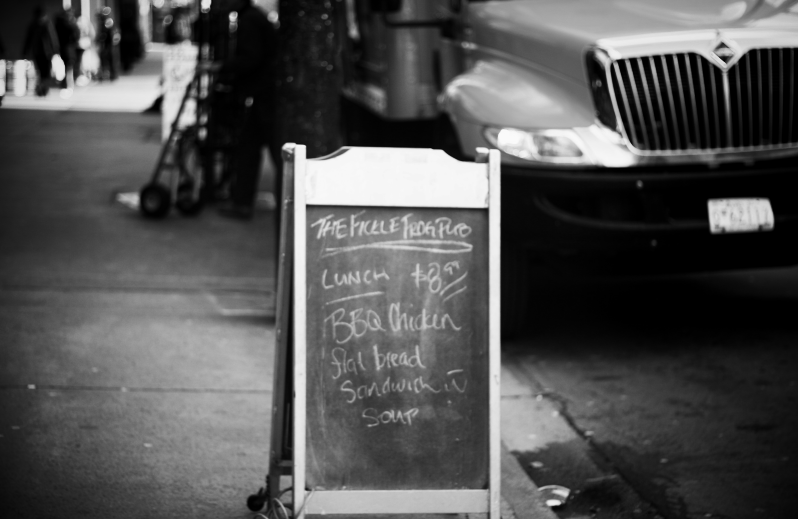 THE FICKLE FROG PUB
LUNCH $8.99
BBQ Chicken
flat bread
Sandwich w
SOUP